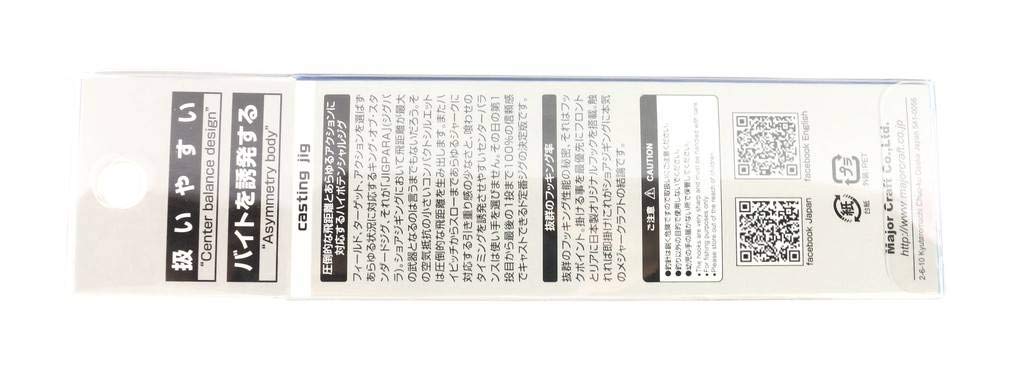 扱いやすい
"Center balance design"
バイトを誘発する
"Asymmetry body"
casting jig
圧倒的な飛距離とあらゆるアクションに
対応するハイポテンシャルジグ
フィールド、ターゲット、アクションを選ばず
あらゆる状況に対応するキング・オブ・スタ
ンダードジグ、それが「JIGPARA」(ジグパ
ラ)。ショアジギングにおいて飛距離が最大
の武器となるのは言うまでもないだろう。そ
の空気抵抗の小さいコンパクトシルエット
は圧倒的な飛距離を生み出します。またハ
イピッチからスローまであらゆるジャークに
対応する引き重り感の少なさと、喰わせの
タイミングを誘発させやすいセンターバラ
ンスは使い手を選びません。その日の第1
投目から最後の1投まで100%の信頼感
でキャストできるド定番ジグの決定版です。
抜群のフッキング率
抜群のフッキング性能の秘密、それはフッ
クポイント、掛ける事を最優先にフロント
とリアに日本製オリジナルフックを搭載。触
れれば即掛け!これがショアジギングに本気
のメジャークラフトの結論です。
ご注意 CAUTION
●釣針は鋭く危険ですので取扱いにご注意ください。
●釣り以外の目的で使用しないでください。
●幼児の手の届かない所で保管してください。
•The hooks are very sharp and must be handled with care.
•For fishing purposes only.
•Please store out of the reach of children.
facebook Japan
facebook English
紙
台紙
プラ
外袋:PET
Major Craft Co.,Ltd.
http://www.majorcraft.co.jp